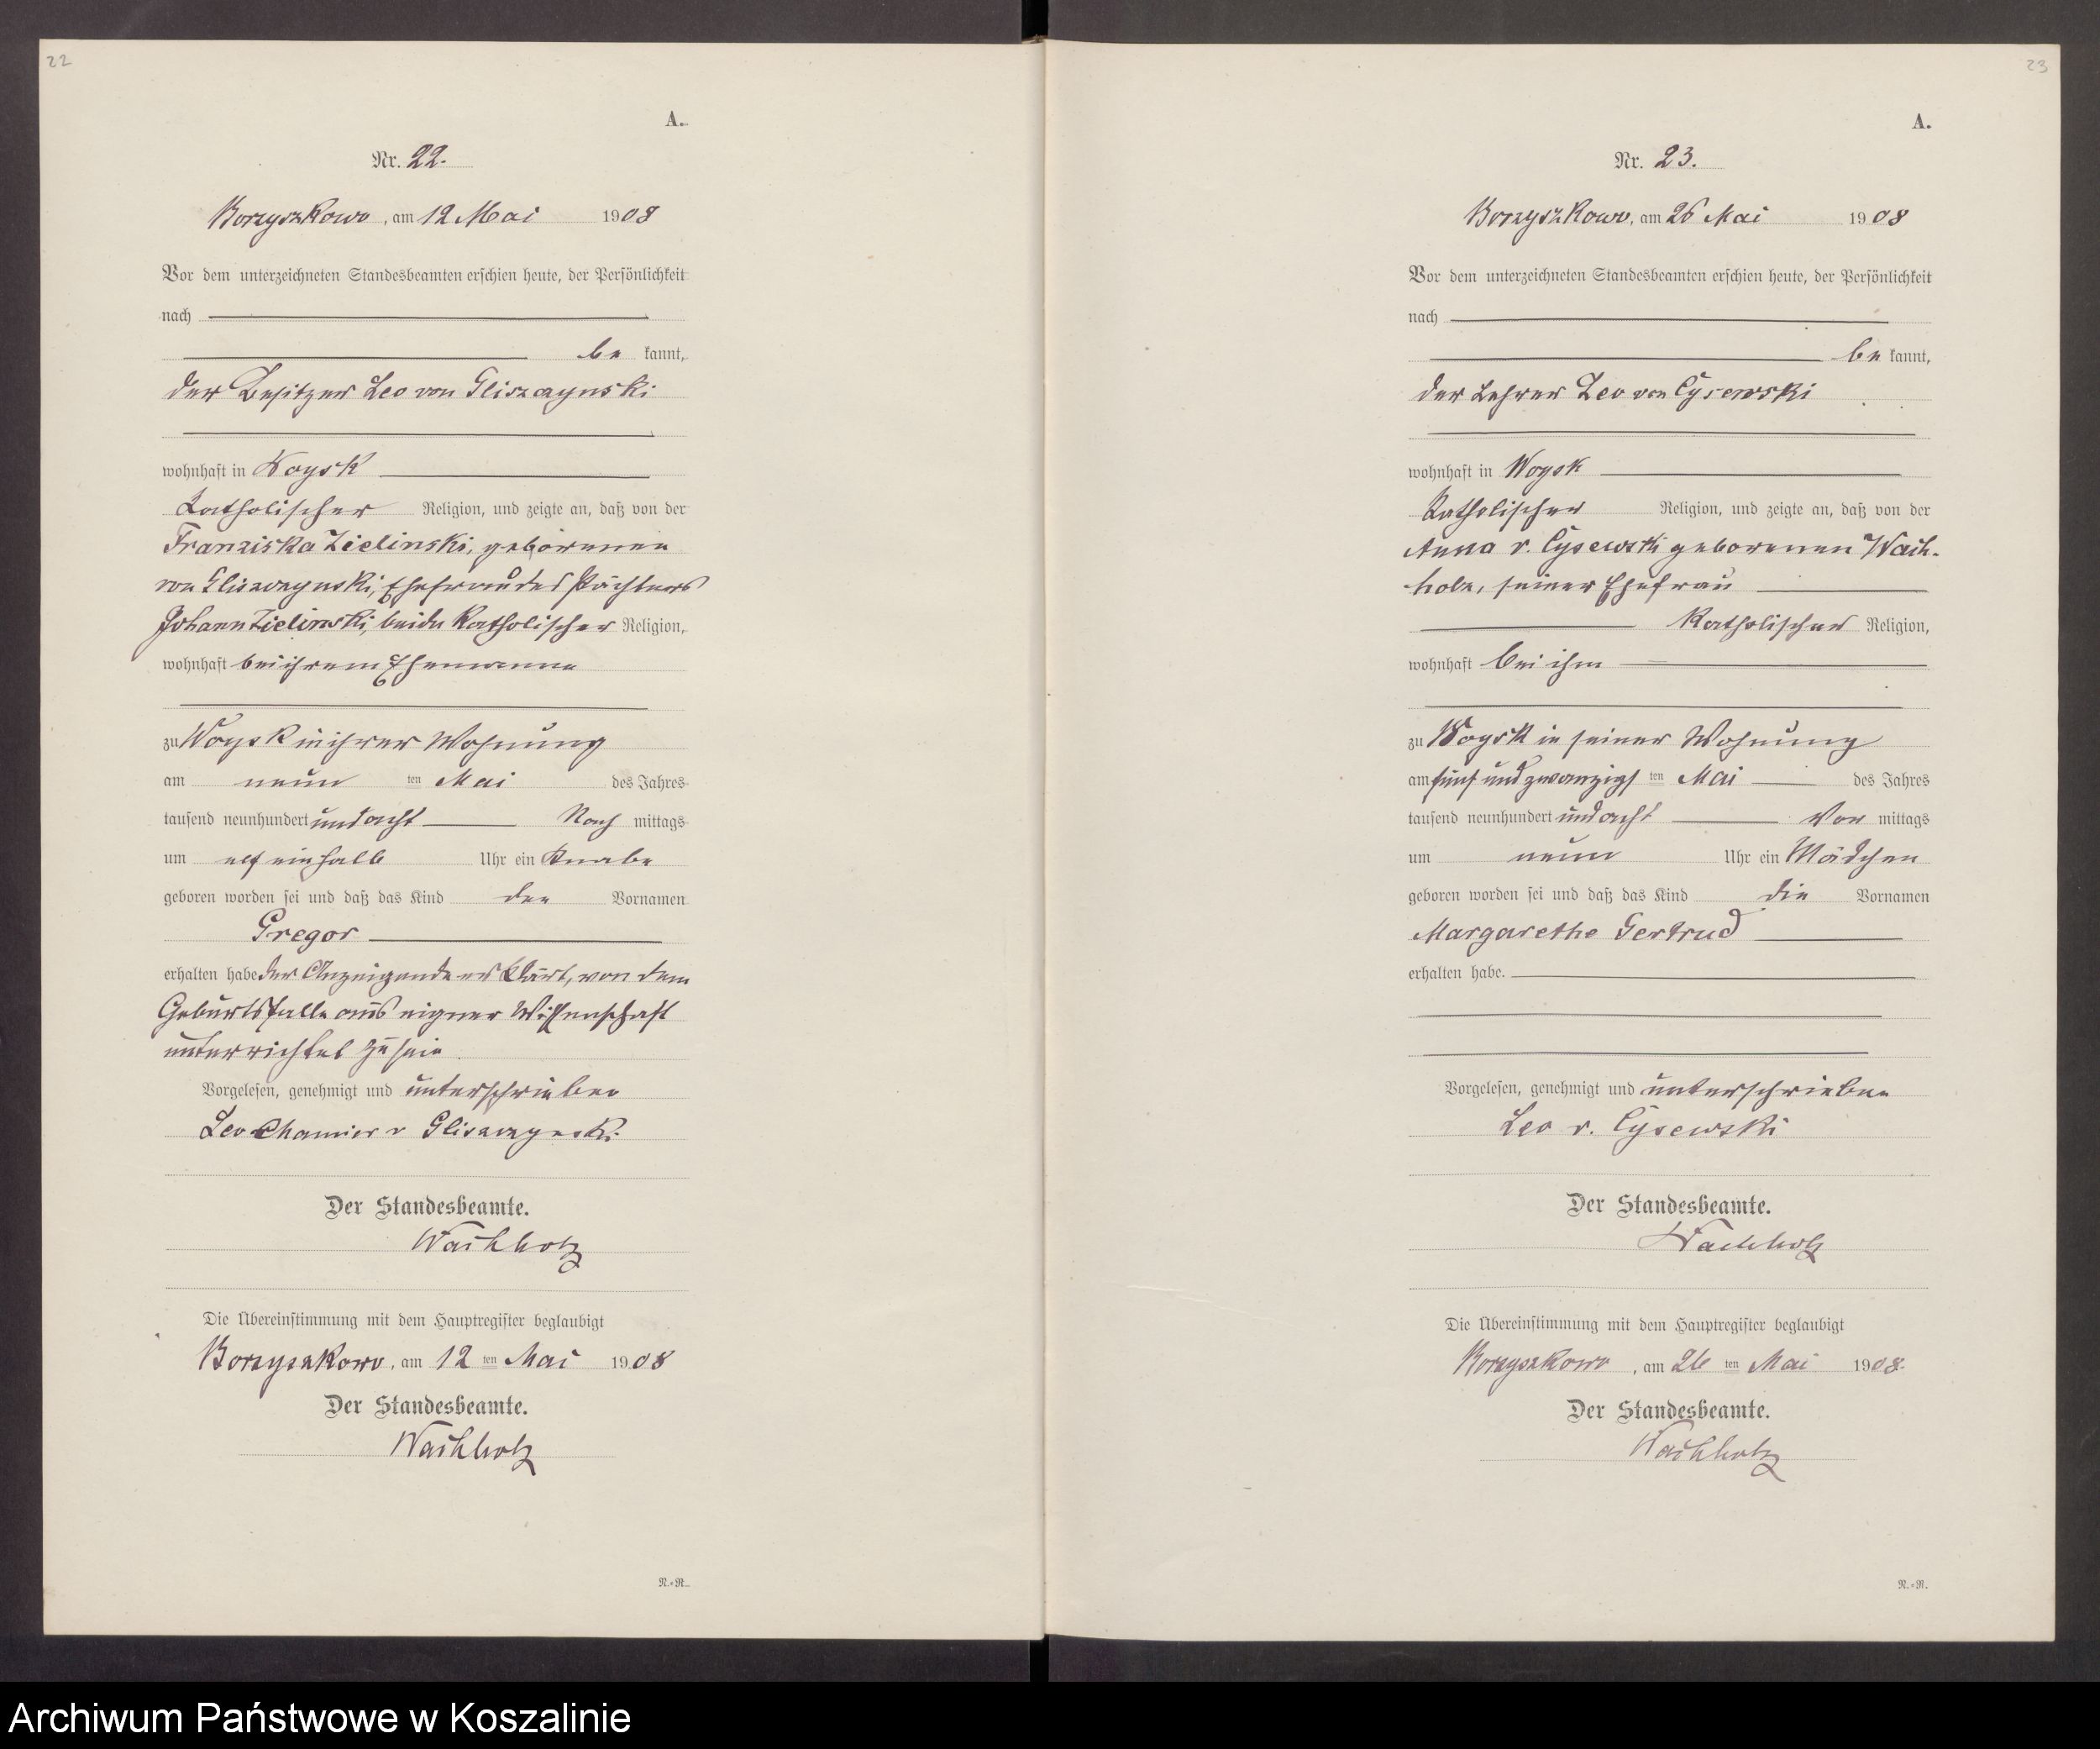 22
A.
Nr. 22.
Borzyszkowo, am 12 Mai 1908
Vor dem unterzeichneten Standesbeamten erschien heute, der Persönlichkeit
nach
be kannt,
der Besitzer Leo von Gliszczynski
wohnhaft in Woysk
Katholischer Religion, und zeigte an, daß von der
Franziska Zielinski, geborenen
von Gliszczynski, Ehefrau des Pächters
Johann Zielinski, beide Katholischer Religion,
wohnhaft bei ihrem Ehemanne
zu Woysk in ihrer Wohnung
am neun ten Mai des Jahres
tausend neunhundert und acht Nach mittags
um elf einhalb Uhr ein Knabe
geboren worden sei und daß das Kind den Vornamen
Gregor
erhalten habe der Anzeigende erklärt, von dem
Geburtsfalle aus eigner Wissenschaft
unterrichtet zu sein
Vorgelesen, genehmigt und unterschrieben
Leo Chamier v Gliszczynski
Der Standesbeamte.
Wachholz
Die Übereinstimmung mit dem Hauptregister beglaubigt
Borzyszkowo, am 12 ten Mai 1908
Der Standesbeamte.
Wachholz
N.=R.
23
A.
Nr. 23.
Borzyszkowo, am 26 Mai 1908
Vor dem unterzeichneten Standesbeamten erschien heute, der Persönlichkeit
nach
be kannt,
der Lehrer Leo von Cysewski
wohnhaft in Woysk
Katholischer Religion, und zeigte an, daß von der
Anna v. Cysewski geborenen Wach-
holz, seiner Ehefrau
Katholischer Religion,
wohnhaft bei ihm
zu Woysk in seiner Wohnung
am fünf und zwanzigs ten Mai des Jahres
tausend neunhundert und acht Vor mittags
um neun Uhr ein Mädchen
geboren worden sei und daß das Kind die Vornamen
Margarethe Gertrud
erhalten habe.
Vorgelesen, genehmigt und unterschrieben
Leo v. Cysewski
Der Standesbeamte.
Wachholz
Die Übereinstimmung mit dem Hauptregister beglaubigt
Borzyszkowo, am 26 ten Mai 1908.
Der Standesbeamte.
Wachholz
N.=R.
Archiwum Państwowe w Koszalinie